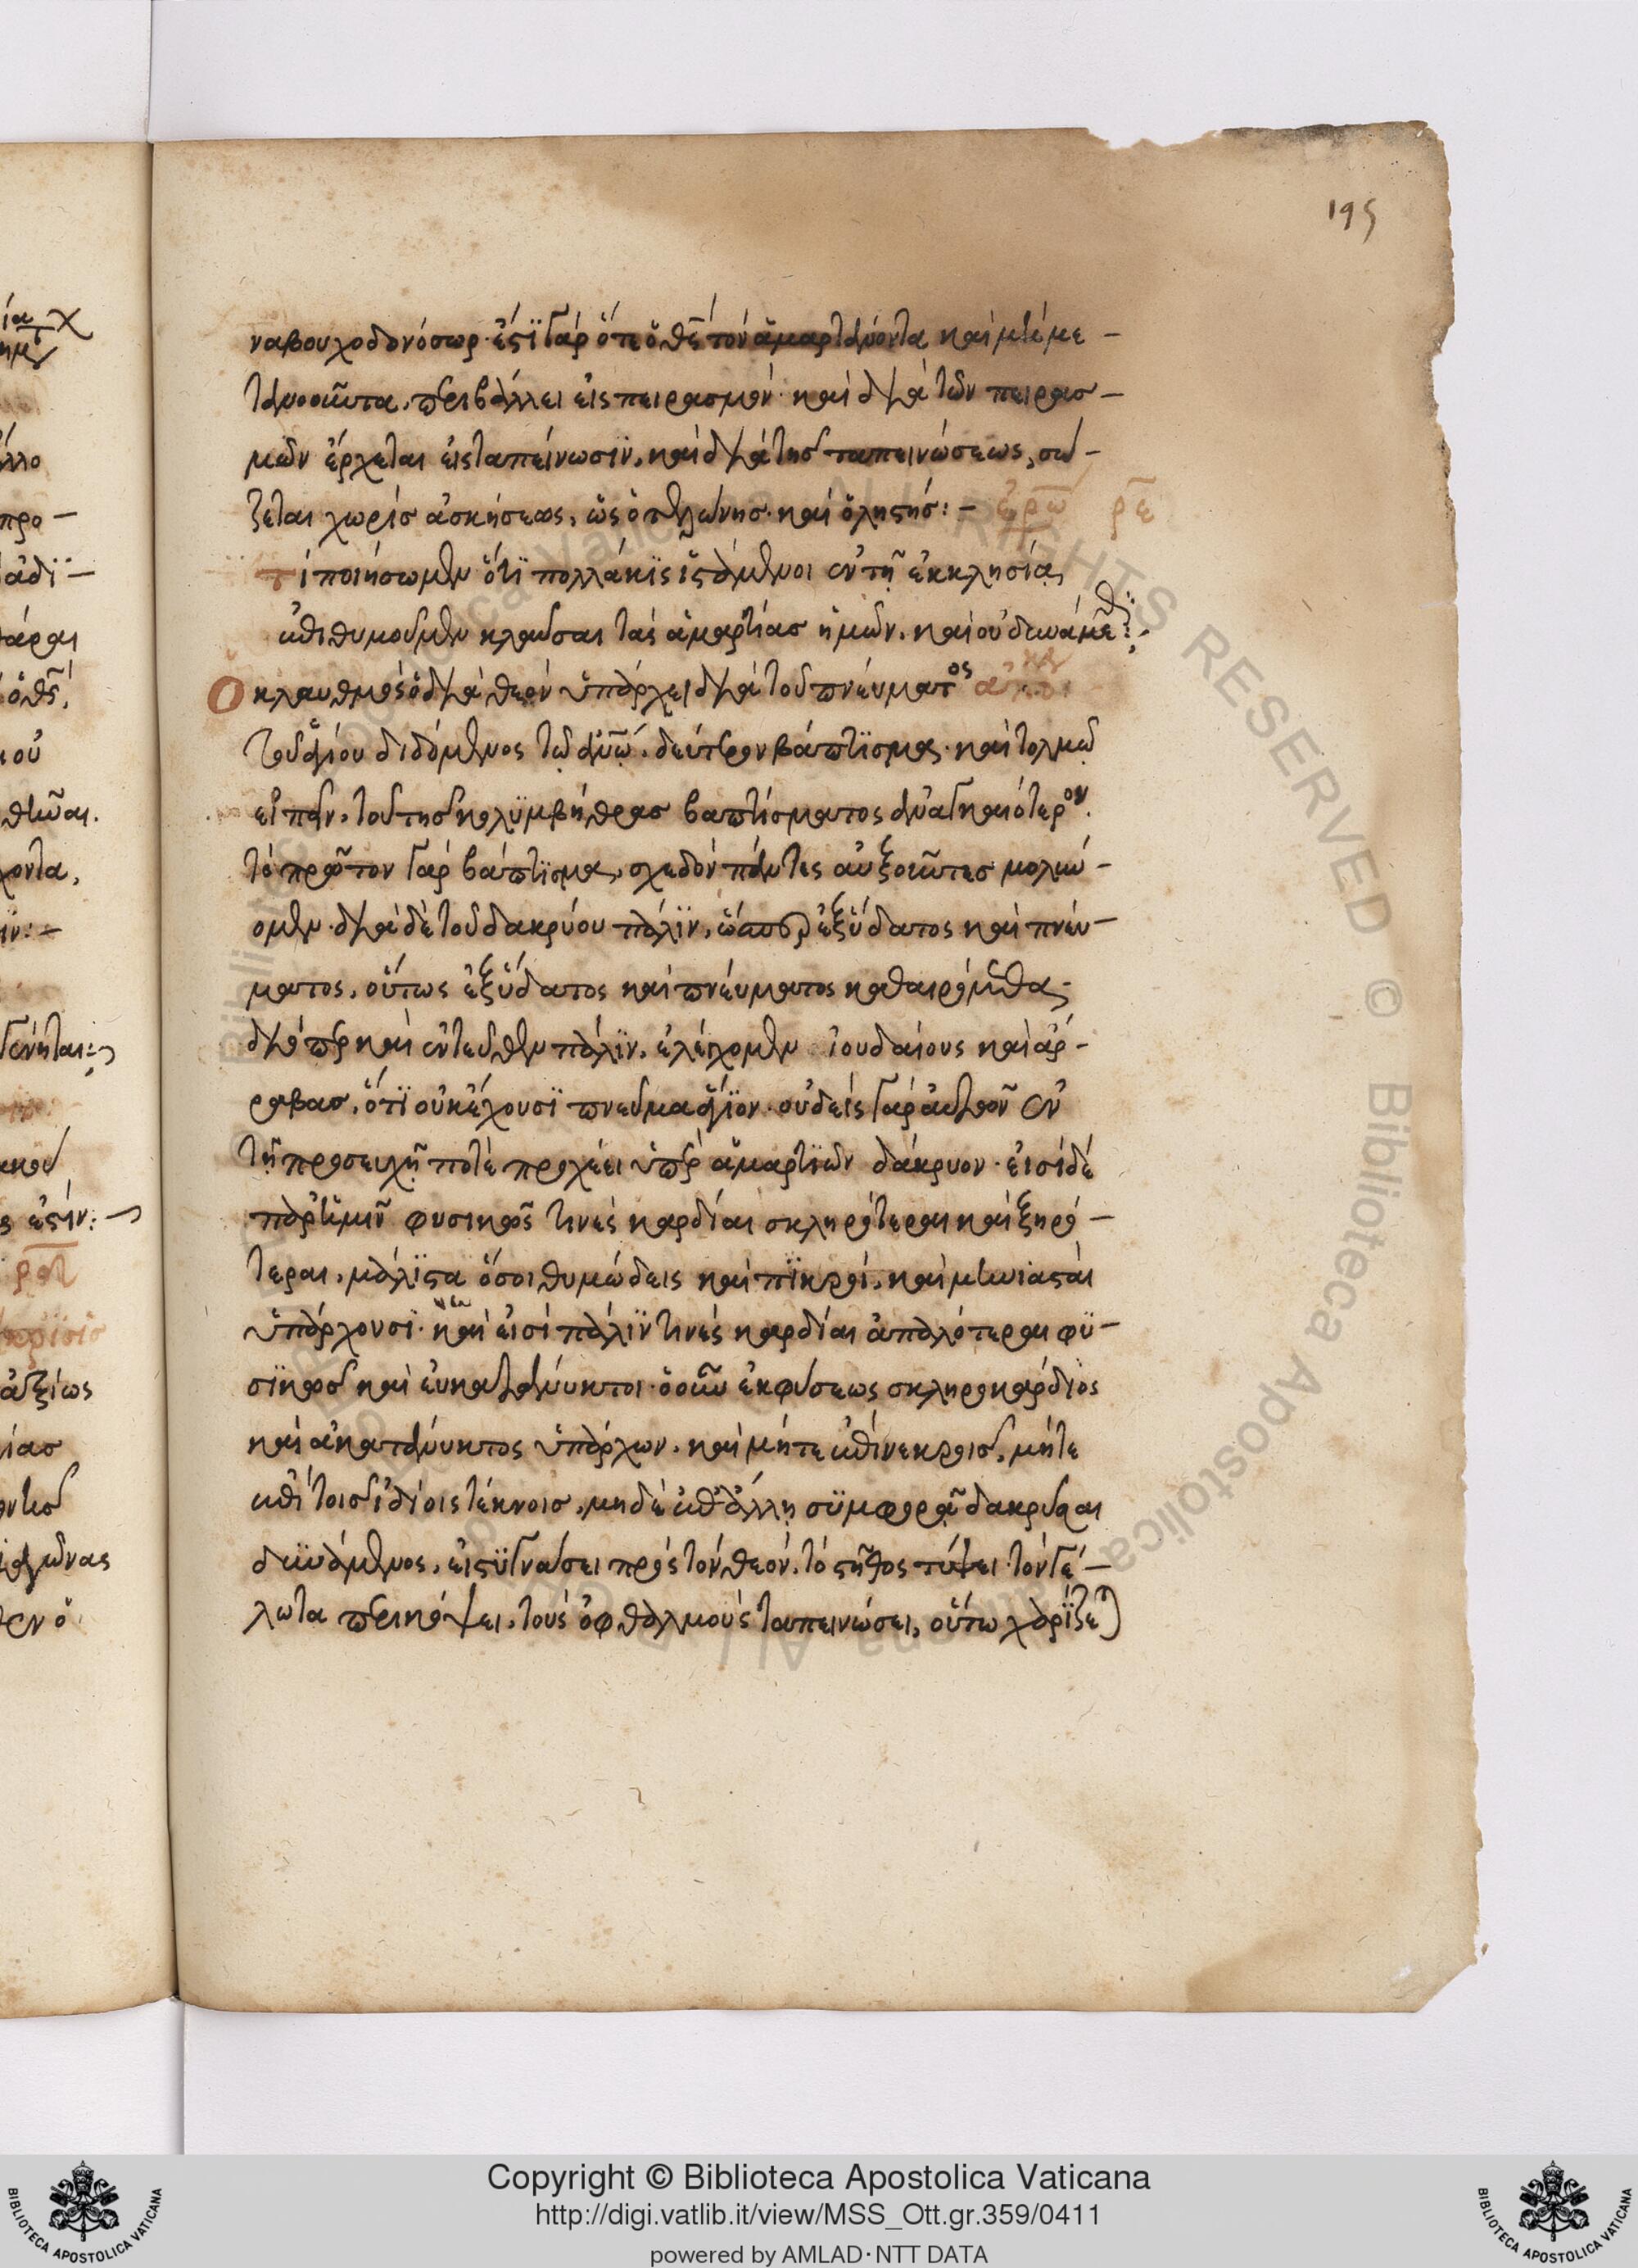 195
ναβουχοδονόσωρ· ἔστϊ γὰρ ὅτε ὁ θς τὸν ἁμαρτάνοντα καὶ μὴ με –
τανοοῦντα, περιβάλλει εἰς πειρασμόν· καὶ διὰ τῶν πειρασ –
μῶν ἔρχεται εἰς ταπείνωσϊν, καὶ διὰ τῆς ταπεινώσεως, σώ –
ζεται χωρὶς ἀσκήσεως, ὡς ὁ τελώνης· καὶ ὁ ληστής: – ἐρω ρε
τί ποιήσωμεν ὅτϊ πολλάκϊς ἱστάμενοι ἐν τῇ ἐκκλησίᾳ,
ἐπιθυμοῦμεν κλαῦσαι τὰς ἁμαρτίας ἡμῶν, καὶ οὐ δυνάμεθα:
Ο κλαυθμὸς ὁ διὰ θεὸν ὑπάρχει διὰ τοῦ πνεύματος
τοῦ ἁγίου διδόμενος τῷ ἀνῳ, δεύτερον βάπτϊσμα· καὶ τολμῶ
εἰπεῖν, τοῦ τῆς κολϋμβήθρας βαπτίσματος ἀναγκαιότερον.
τὸ πρῶτον γὰρ βάπτϊσμα, σχεδὸν πάντες αὐξοῦντες μολύν –
ομεν· διὰ δὲ τοῦ δακρύου πάλϊν, ὥσπερ ἐξ ὕδατος καὶ πνεύ –
ματος, οὕτως ἐξ ὕδατος καὶ πνεύματος καθαιρόμεθα,
διόπερ καὶ ἐντεῦθεν πάλϊν, ἐλέγχομεν ἰουδαίους καὶ ἄρ –
ραβας, ὅτϊ οὐκ ἔχουσϊ πνεῦμα ἅγϊον· οὐδεὶς γὰρ αὐτῶν ἐν
τῇ προσευχῇ ποτὲ προχέει ὑπὲρ ἁμαρτϊῶν δάκρυον· εἰσὶ δὲ
παρ' ἡμῖν φυσικῶς τινὲς καρδίαι σκληρότεραι καὶ ξηρό –
τεραι, μάλϊστα ὅσοι θυμώδεις καὶ πϊκροί, καὶ μηνιασταὶ
ὑπάρχουσϊ· καὶ εἰσὶ πάλϊν τινὲς καρδίαι ἁπαλότεραι φϋ –
σϊκῶς καὶ εὐκατάνυκτοι· ὁ οὖν ἐκ φύσεως σκληροκάρδϊος
καὶ ἀκατάνυκτος ὑπάρχων, καὶ μήτε ἐπὶ νεκροῖς, μήτε
ἐπὶ τοῖς ἰδίοις τέκνοις, μηδὲ ἐπ' ἄλλῃ σϋμφορᾷ δακρῦσαι
δυνάμενος, εἰ στενάσει πρὸς τὸν θεόν, τὸ στῆθος τύψει· τὸν γέ –
λωτα περικόψει, τοὺς ὀφθαλμοὺς ταπεινώσει, οὕτω χαρϊζε
Copyright © Biblioteca Apostolica Vaticana
http://digi.vatlib.it/view/MSS_Ott.gr.359/0411
powered by AMLAD·NTT DATA